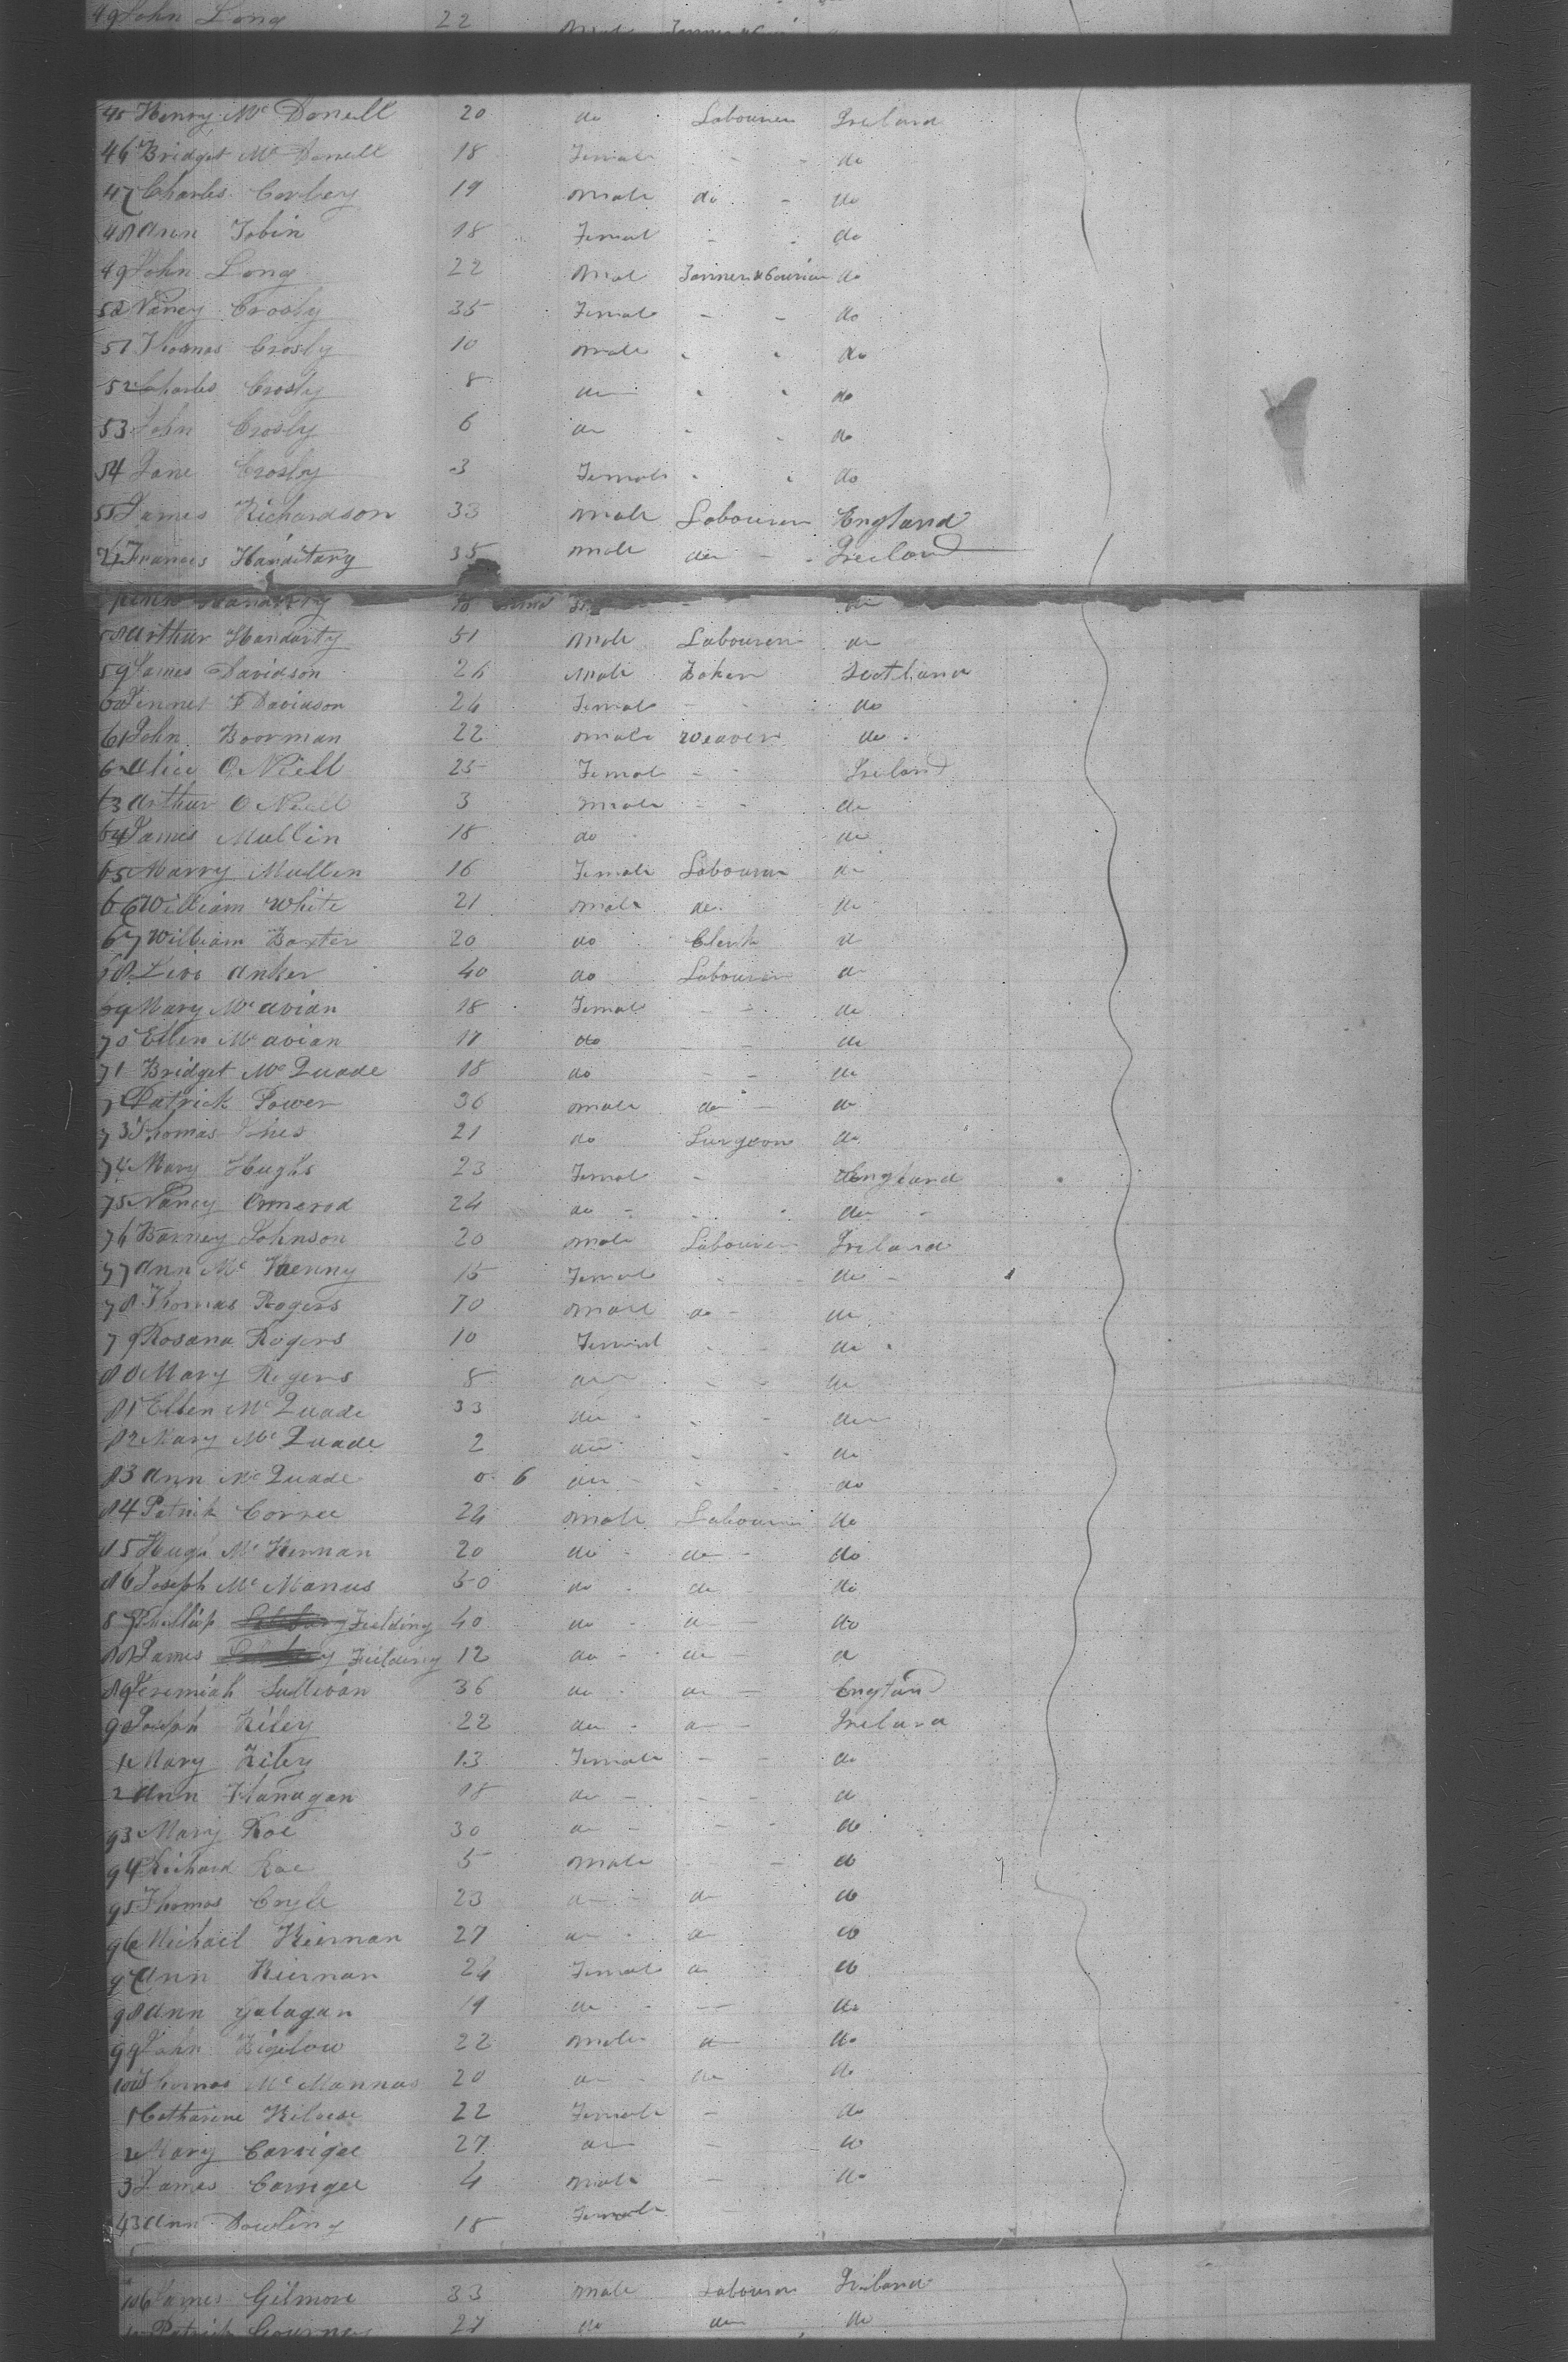 49 John Long 22
45 Henry Mc Donell 20 do Labourer Ireland
46 Bridget Mc Donell 18 Female - - do
47 Charles Corbey 19 Male do - do
48 Ann Tobin 18 Femal - - do
49 John Long 22 Mal Tanner & Courier do
50 Nancy Crosby 35 Female - - do
51 Thomas Crosby 10 Male - - do
52 Charles Crosby 8 do - - do
53 John Crosby 6 do - - do
54 Jane Crosby 3 Female - - do
55 James Richardson 33 Male Labourer England
Frances 35 Male do - Ireland
58 Arthur Handarty 51 Male Labourer do
59 James Davidson 26 Male Baker Scotland
60 Jennet F Davidson 24 Female - - do
61 John Boorman 22 Male Weaver do
62 Alice O Niell 25 Femal - - Ireland
63 Arthur O Niell 3 Male - - do
64 James Mullin 18 do do
65 Marry Mullen 16 Female Labourer do
66 William White 21 Male do do
67 William Baxter 20 do Clerk do
68 Levi Anker 40 do Labourer do
69 Mary Mc avian 18 Femal - - do
70 Ellen Mc avian 17 do - - do
71 Bridget Mc Quade 18 do - - do
7 Patrick Power 36 Male do - do
73 Thomas 21 do Surgeon do
74 Mary Hughs 23 Femal - England
75 Nancy Ormerod 24 do - - - do -
76 Barney Johnson 20 Male Labourer Ireland
77 Ann Mc 15 Femal - - do -
78 Thomas Rogers 10 Male do - do
79 Rosana Rogers 10 Femal - - do
80 Mary Rogers 8 do - - do
81 Ellen Mc Quade 33 do - - do
82 Mary Mc Quade 2 do - - do
83 Ann Mc Quade 0. 6 do - - do
84 Patrick 24 Male Labourer do
85 Hugh Mc Kernan 20 do - do - do
86 Joseph Mc Manus 50 do - do - do
87 Phillip Fielding 40 do - do - do
88 James Fielding 12 do - do - do
89 Jeremiah Sullivan 36 do - do - England
90 Joseph Kiley 22 do - do - Ireland
1 Mary Kiley 13 Female - - do
2 Ann Flanagan 18 do - - - do
93 Mary Roe 30 do - - - do
94 Richard Roe 5 Male - do
95 Thomas 23 do - do do
96 Michael Kiernan 27 do - do do
97 Ann Kiernan 24 Female do do
98 Ann Galagan 19 do - - do
99 John Bigelow 22 Male do do
100 Thomas Mc Mannus 20 do - do do
1 Catharine 22 Female - do
2 Mary Carrigee 27 do - do
3 James Carrigee 4 Male - do
43 Ann Dowling 18 Female -
106 James Gilmore 33 Male Labourer Ireland
Patrick 27 do do do